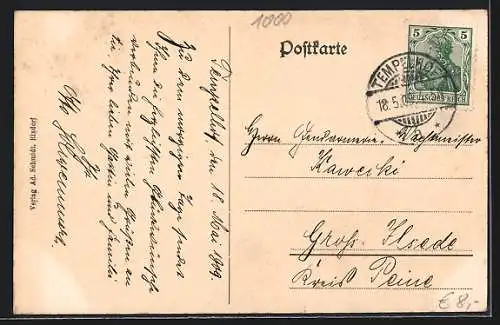 1000
Postkarte
5 5
DEUTSCHES REICH
TEMPELHOF
18.5.0
Tempelhof, den 18. Mai 1909.
Zu dem morgigen Tage sendet
Ihnen die herzlichsten Glückwünsche
verbunden mit vielen Grüßen an
die Ihre lieben Gattin und Familie
Ihr
Otto
Verlag Ad. Schmidt, Rixdorf
Herrn Gendarmerie-Wachtmeister
Kawecki
Groß Ilsede
Kreis Peine
€ 8,-